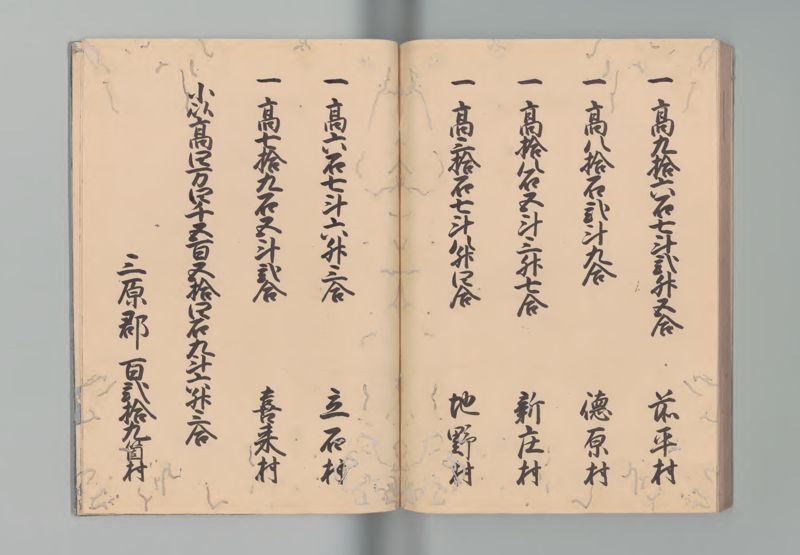 一 高九拾六石七斗弐升五合 前平村
一 高八拾石弐斗九合 德原村
一 高拾八石五斗三升七合 新庄村
一 高三拾石七斗八升四合 地野村
一 高六石七斗六升三合 立石村
一 高七拾九石五斗弐合 喜来村
小以高四万四千五百五拾四石九斗六升三合
三原郡 百弐拾九箇村